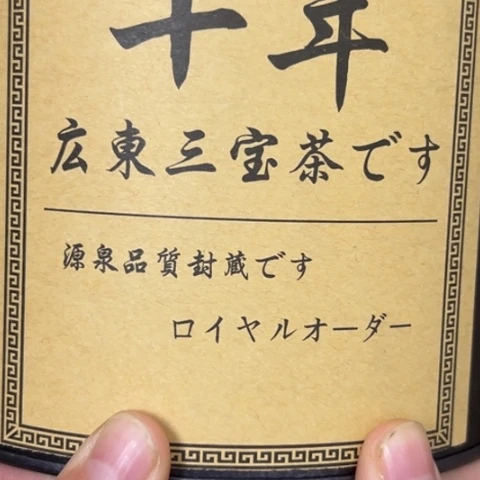 十年
広東三宝茶です
源泉品質封蔵です
ロイヤルオーダー